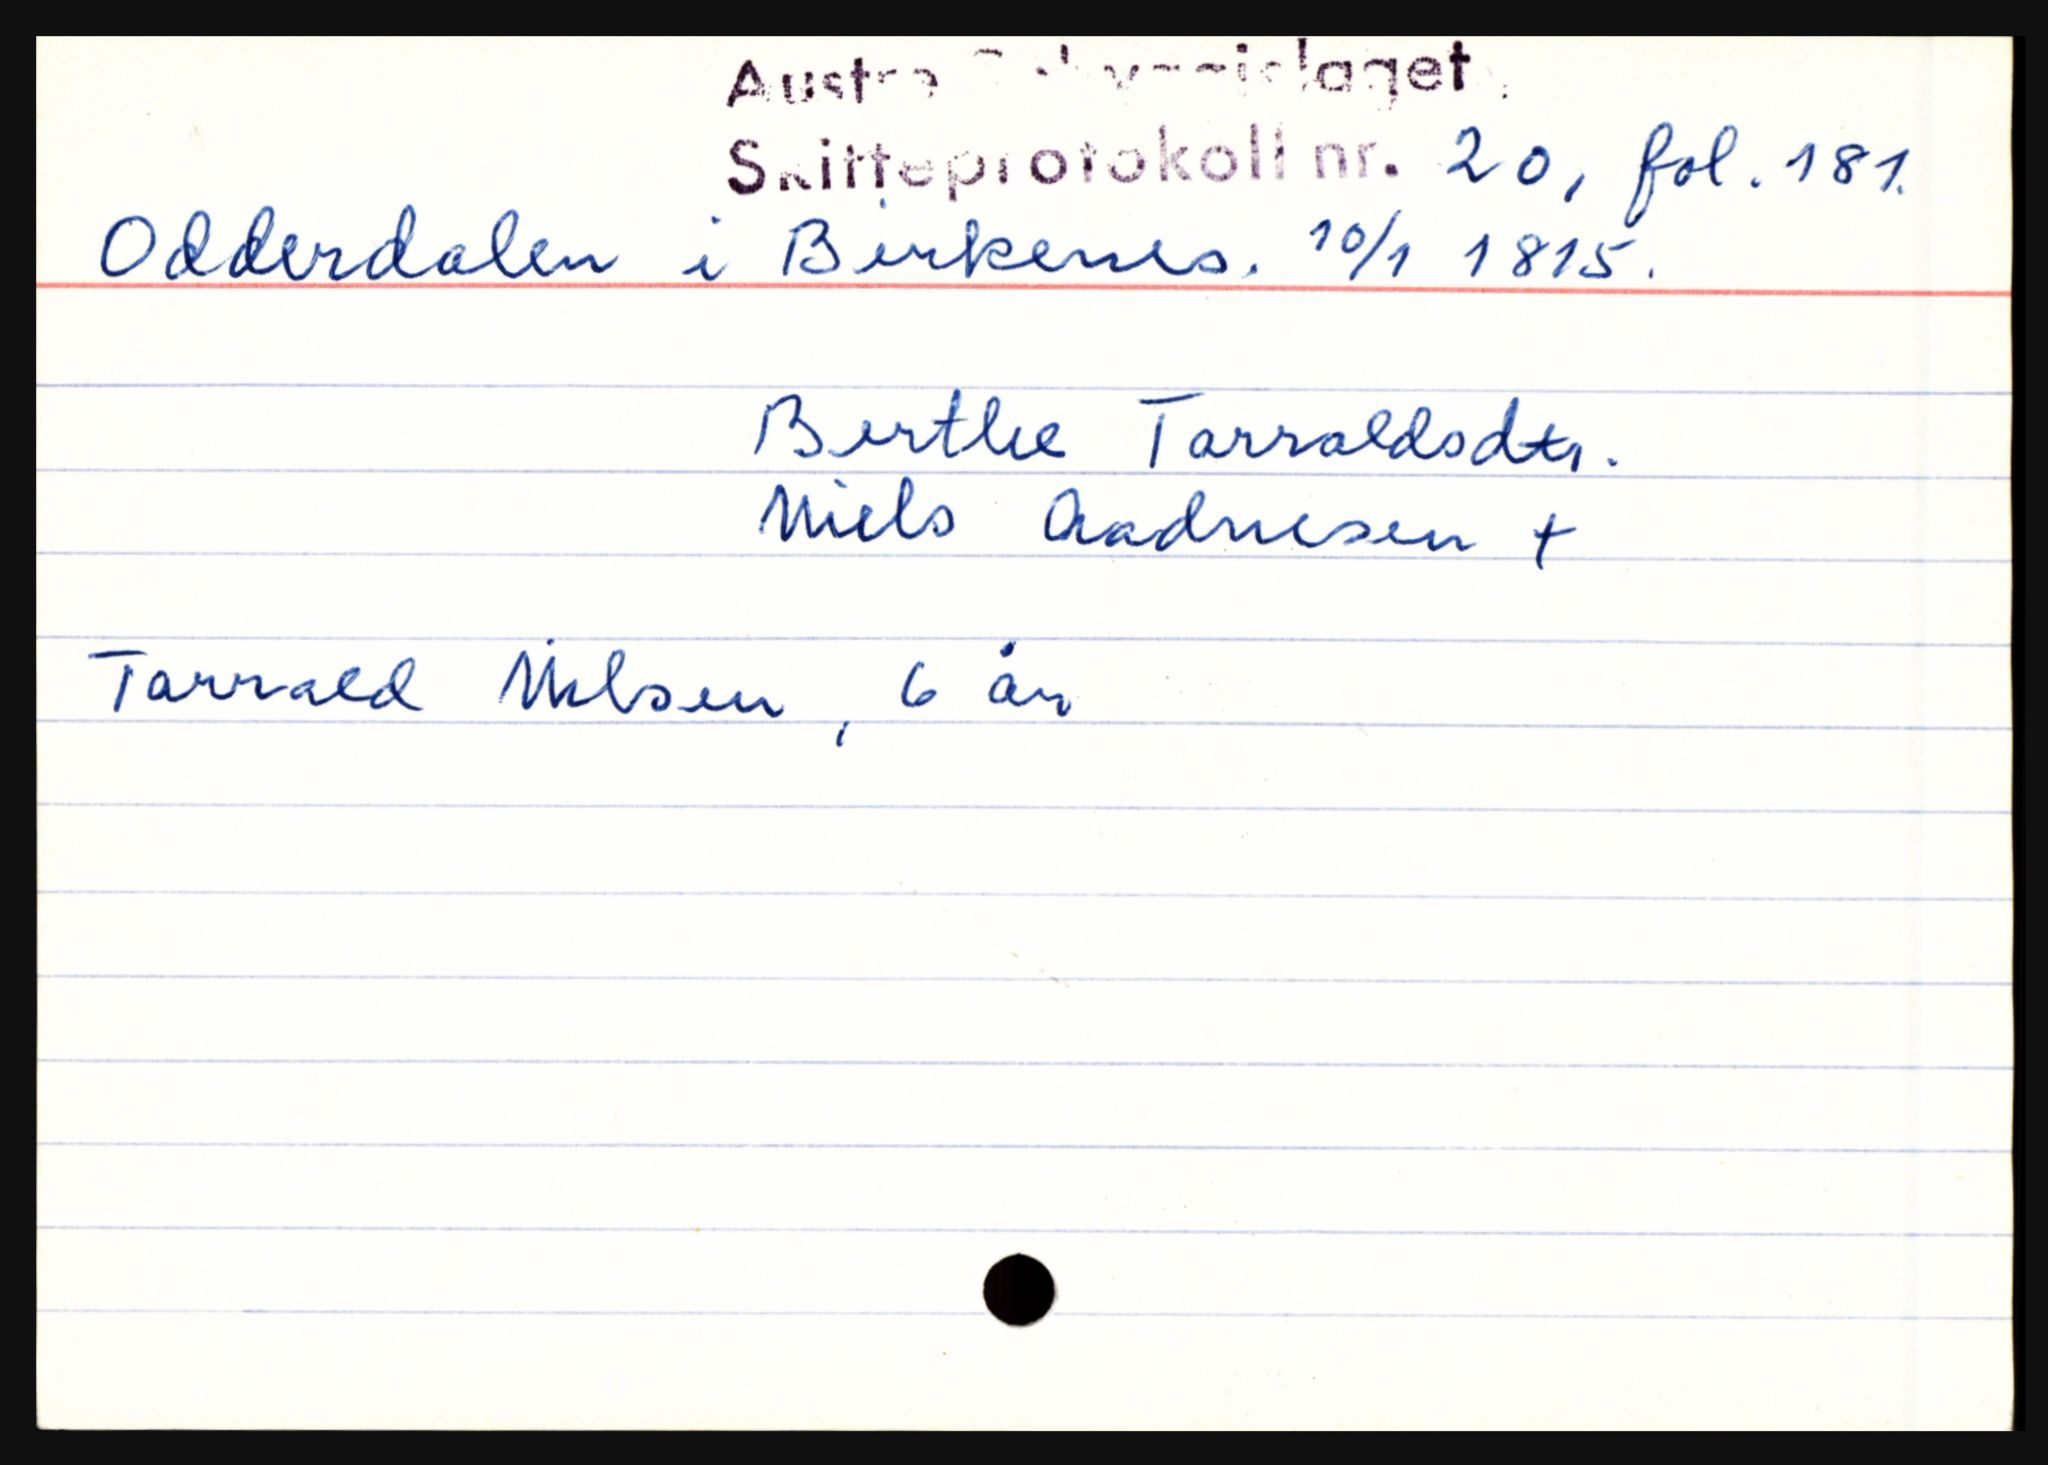 Skifteprotokoll nr. 20, fol. 181.
Odderdalen i Birkenes. 10/1 1815.
Berthe Tarraldsdtr.
Niels Aadnesen +
Tarrald Nielsen, 6 år